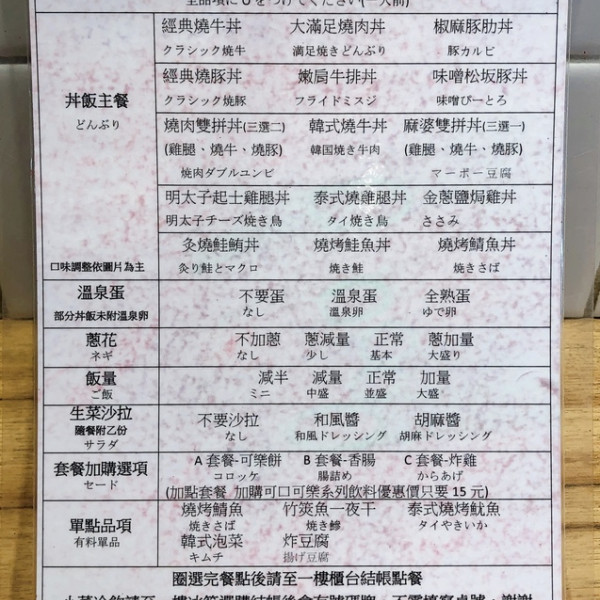 全品項に O をつけてください(一人前)
經典燒牛丼 大滿足燒肉丼 椒麻豚肋丼
クラシック焼牛 満足焼きどんぶり 豚カルビ
經典燒豚丼 嫩肩牛排丼 味噌松坂豚丼
クラシック焼豚 フライドミスジ 味噌ぴーとろ
丼飯主餐
どんぶり
燒肉雙拼丼(三選二) 韓式燒牛丼 麻婆雙拼丼(三選一)
(雞腿、燒牛、燒豚) 韓国焼き牛肉 (雞腿、燒牛、燒豚)
焼肉ダブルユンビ マーボー豆腐
明太子起士雞腿丼 泰式燒雞腿丼 金蔥鹽焗雞丼
明太子チーズ焼き鳥 タイ焼き鳥 ささみ
炙燒鮭鮪丼 燒烤鮭魚丼 燒烤鯖魚丼
口味調整依圖片為主 炙り鮭とマクロ 焼き鮭 焼きさば
溫泉蛋 不要蛋 溫泉蛋 全熟蛋
部分丼飯未附溫泉卵 なし 溫泉卵 ゆで卵
蔥花 不加蔥 蔥減量 正常 蔥加量
ネギ なし 少し 基本 大盛り
飯量 減半 減量 正常 加量
ご飯 ミニ 中盛 並盛 大盛
生菜沙拉 不要沙拉 和風醬 胡麻醬
隨餐附乙份 なし 和風ドレッシング 胡麻ドレッシング
サラダ
套餐加購選項 A 套餐-可樂餅 B 套餐-香腸 C 套餐-炸雞
セード コロッケ 腸詰め からあげ
(加點套餐 加購可口可樂系列飲料優惠價只要 15 元)
單點品項 燒烤鯖魚 竹筴魚一夜干 泰式燒烤魷魚
有料單品 焼きさば 焼き鯵 タイやきいか
韓式泡菜 炸豆腐
キムチ 揚げ豆腐
圈選完餐點後請至一樓櫃台結帳點餐